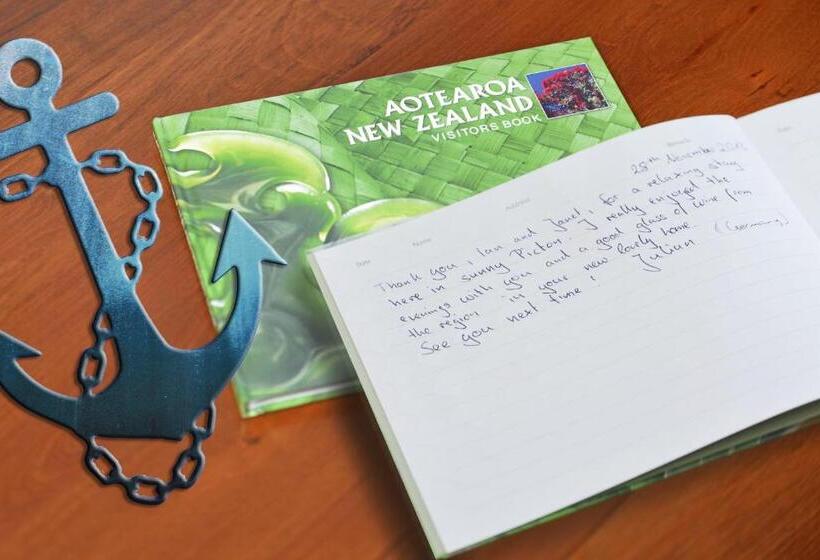 AOTEAROA
NEW ZEALAND
VISITORS BOOK
Date Name Address
25th November
Thank you, Ian and Janet, for a relaxing stay
here in sunny Picton. I really enjoyed the
evenings with you and a good glass of wine from
the region in your new lovely home.
See you next time! Julian (Germany)